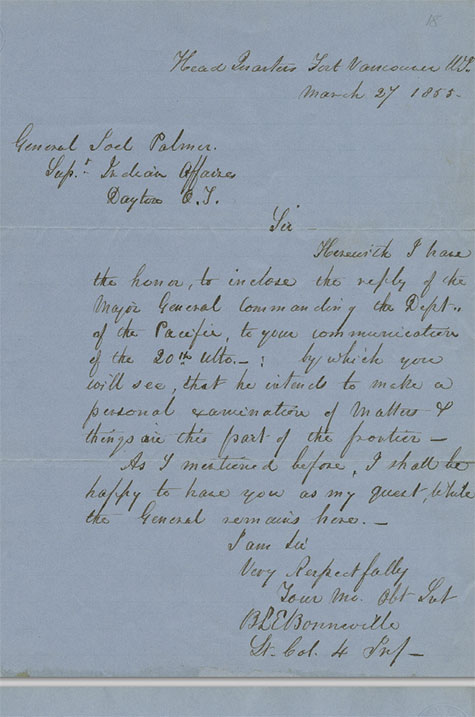 18
Head Quarters Fort Vancouver W.T.
March 27 1855.
General Joel Palmer.
Supt. Indian Affairs
Dayton O.T.
Sir
Herewith I have
the honor, to inclose the reply of the
Major General Commanding the Dept..
of the Pacific, to your communication
of the 20th ulto. – : by which you
will see, that he intends to make a
personal examination of Matters &
things in this part of the frontier –
As I mentioned before, I shall be
happy to have you as my guest, while
the General remains here. –
I am Sir
Very Respectfully
Your Mo. Obt Svt
B L E Bonneville
Lt. Col. 4 Inf –